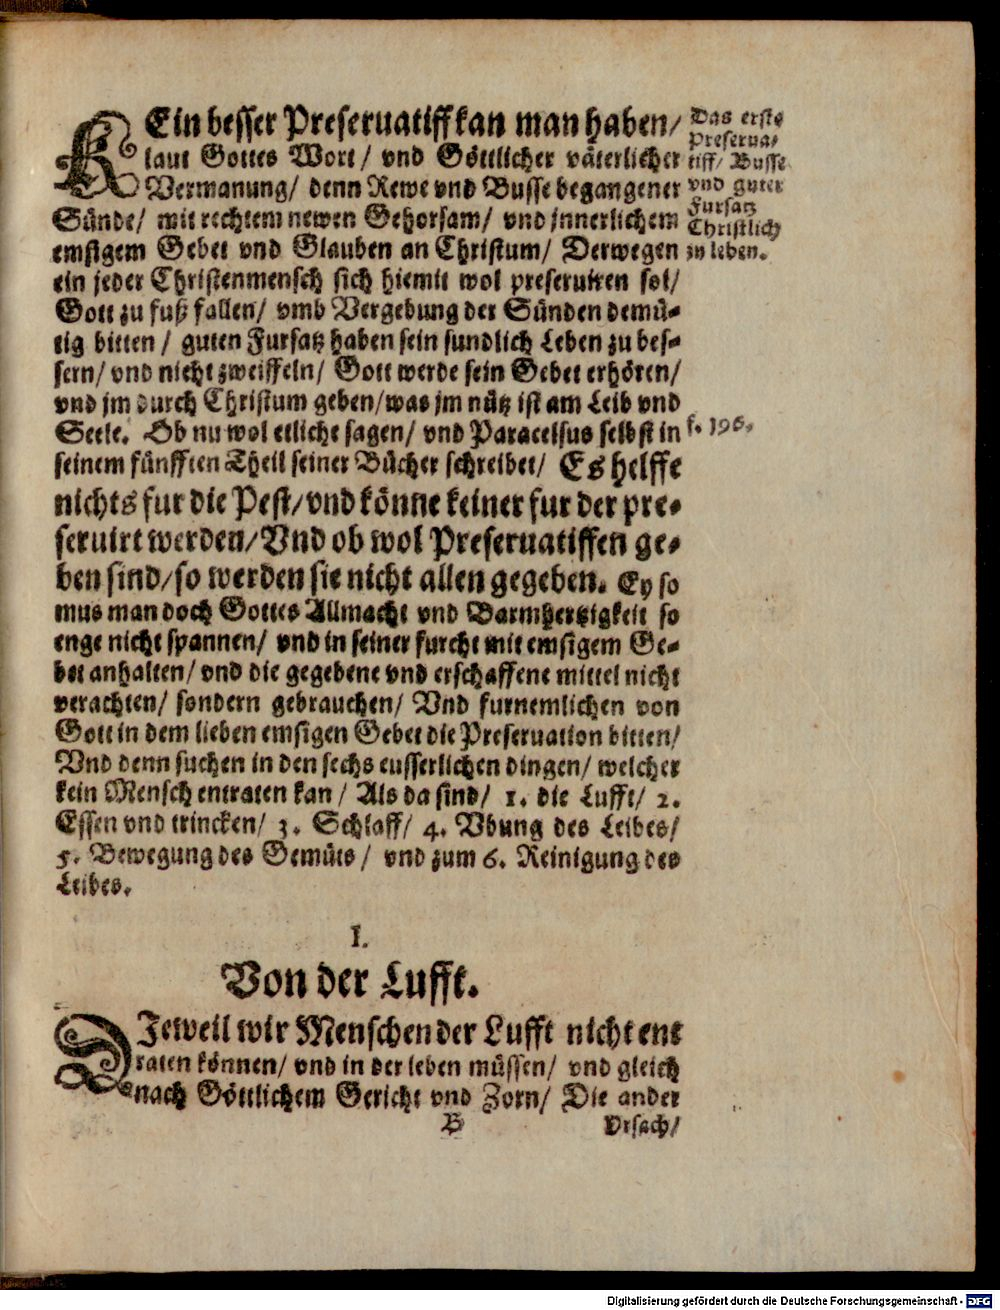 KEin besser Preseruatiff kan man haben/
laut Gottes Wort / vnd Göttlicher väterlicher
Vermanung/ denn Rewe vnd Busse begangener
Sünde/ mit rechtem newen Gehorsam/ vnd jnnerlichem
emsigem Gebet vnd Glauben an Christum/ Derwegen
ein jeder Christenmensch sich hiemit wol preseruiren sol/
Gott zu fuß fallen/ vmb Vergebung der Sünden demü-
tig bitten / guten Fursatz haben sein sundlich Leben zu bes-
sern/ vnd nicht zweiffeln/ Gott werde sein Gebet erhören/
vnd jm durch Christum geben/ was jm nütz ist am Leib vnd
Seele. Ob nu wol etliche sagen/ vnd Paracelsus selbst in
seinem fünfften Theil seiner Bücher schreibet/ Es helffe
nichts fur die Pest/ vnd könne keiner fur der pre-
seruirt werden/ Vnd ob wol Preseruatiffen ge-
ben sind/ so werden sie nicht allen gegeben. Ey so
mus man doch Gottes Allmacht vnd Barmhertzigkeit so
enge nicht spannen/ vnd in seiner furcht mit emsigem Ge-
bet anhalten/ vnd die gegebene vnd erschaffene mittel nicht
verachten/ sondern gebrauchen/ Vnd furnemlichen von
Gott in dem lieben emsigen Gebet die Preseruation bitten/
Vnd denn suchen in den sechs eusserlichen dingen/ welcher
kein Mensch entraten kan / Als da sind/ 1. die Lufft/ 2.
Essen vnd trincken/ 3. Schlaff/ 4. Vbung des Leibes/
5. Bewegung des Gemüts / vnd zum 6. Reinigung des
Leibes.
Das erste
Preserua-
tiff/ Busse
vnd guter
Fursatz
Christlich
zu leben.
f. 196.
I.
Von der Lufft.
DJeweil wir Menschen der Lufft nicht ent
raten können/ vnd in der leben müssen/ vnd gleich
nach Göttlichem Gericht vnd Zorn/ Die ander
B Vrsach/
Digitalisierung gefördert durch die Deutsche Forschungsgemeinschaft - DFG